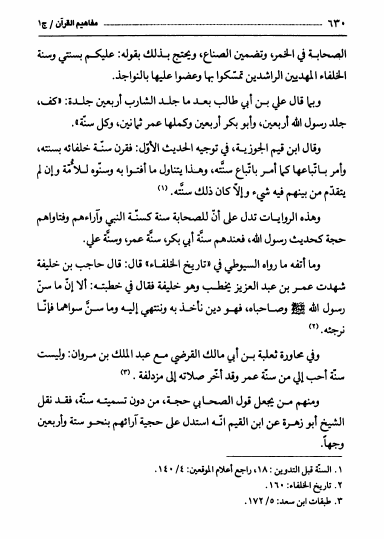 ٦٣٠ مفاهيم القرآن / ج١
الصحابة في الخمر، وتضمين الصناع، ويحتج بذلك بقوله: عليكم بسنتي وسنة
الخلفاء المهديين الراشدين تمسّكوا بها وعضوا عليها بالنواجذ.
وبما قال علي بن أبي طالب بعد ما جلد الشارب أربعين جلدة: «كف،
جلد رسول الله أربعين، وأبو بكر أربعين وكملها عمر ثمانين، وكل سنّة».
وقال ابن قيم الجوزية، في توجيه الحديث الأوّل: فقرن سنّة خلفائه بسنته،
وأمر باتّباعها كما أمر باتّباع سنّته، وهذا يتناول ما أفتوا به وسنّوه للأُمّة وإن لم
يتقدّم من بينهم فيه شيء وإلّا كان ذلك سنّته. (١)
وهذه الروايات تدل على أنّ للصحابة سنة كسنّة النبي وآراءهم وفتاواهم
حجة كحديث رسول الله، فعندهم سنّة أبي بكر، سنّة عمر، وسنّة علي.
وما أتفه ما رواه السيوطي في «تاريخ الخلفاء» قال: قال حاجب بن خليفة
شهدت عمر بن عبد العزيز يخطب وهو خليفة فقال في خطبته: ألا إنّ ما سنّ
رسول الله ﷺ وصاحباه، فهو دين نأخذ به وننتهي إليه وما سنّ سواهما فإنّا
نرجئه. (٢)
وفي محاورة ثعلبة بن أبي مالك القرضي مع عبد الملك بن مروان: وليست
سنّة أحب إلي من سنّة عمر وقد أخّر صلاته إلى مزدلفة . (٣)
ومنهم من يجعل قول الصحابي حجة، من دون تسميته سنة، فقد نقل
الشيخ أبو زهرة عن ابن القيم انّه استدل على حجية آرائهم بنحو ستة وأربعين
وجهاً.
١ . السنّة قبل التدوين : ١٨، راجع أعلام الموقعين: ٤/ ١٤٠.
٢ . تاريخ الخلفاء: ١٦٠.
٣ . طبقات ابن سعد: ٥/ ١٧٢.